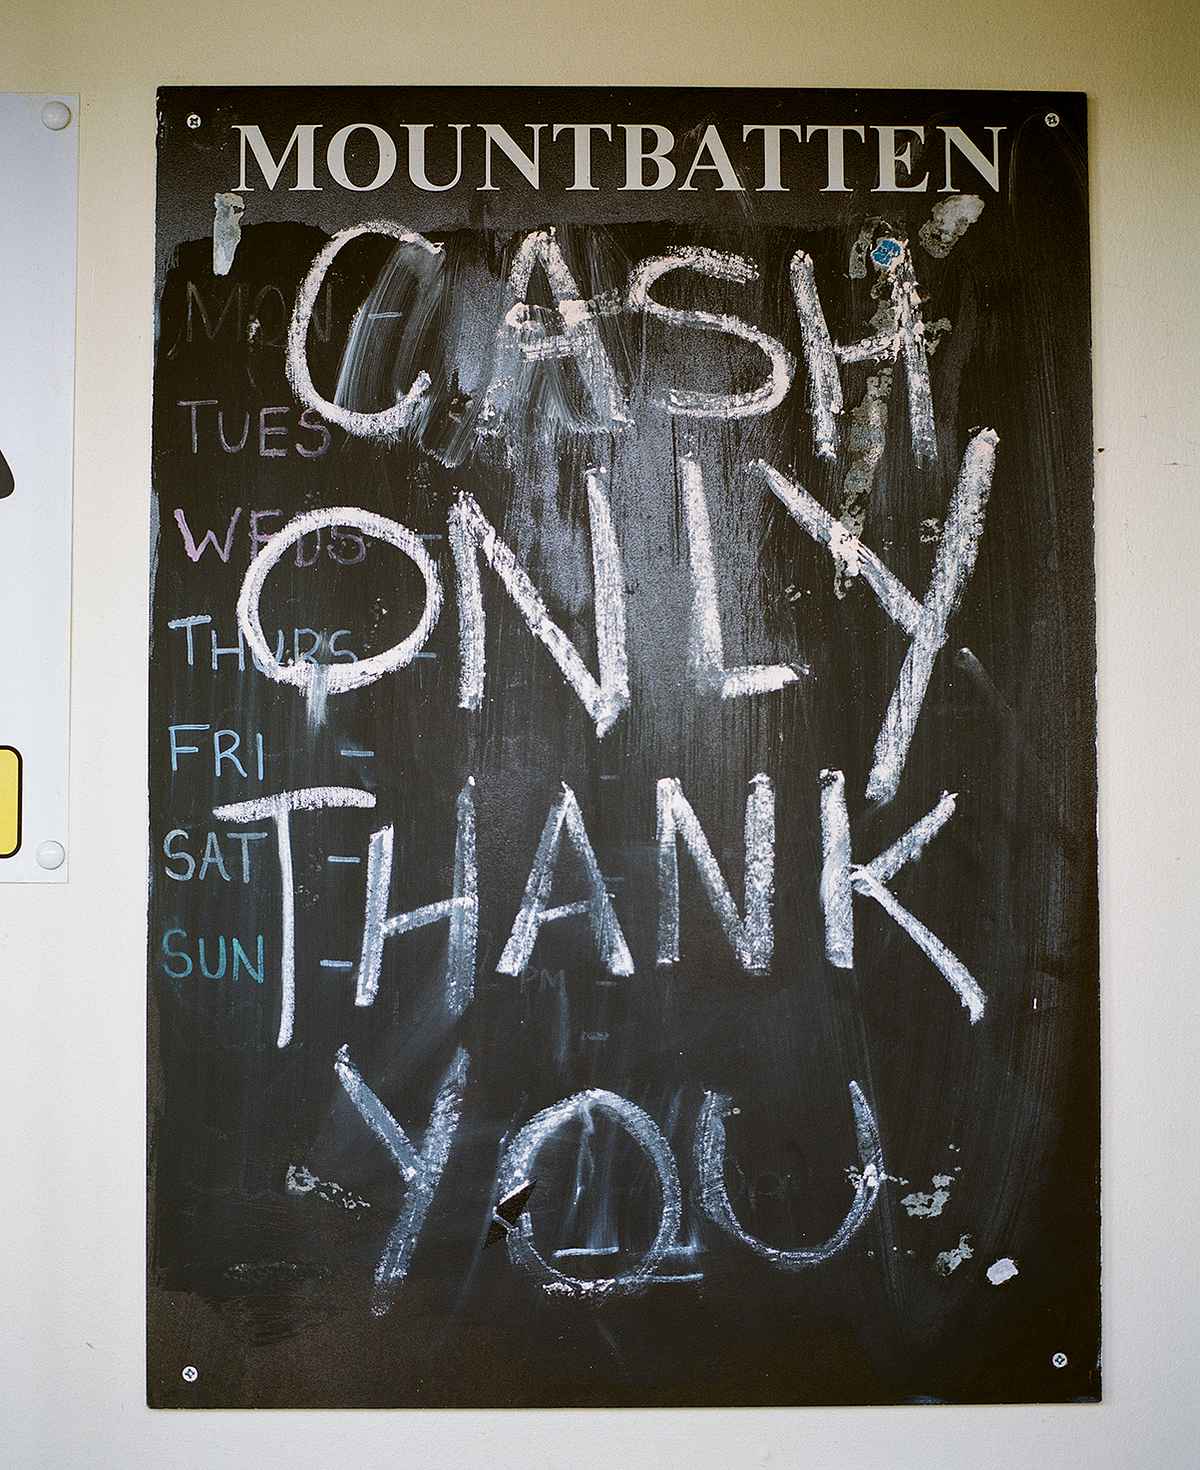 MOUNTBATTEN
CASH
MON -
TUES
ONLY
WEDS -
THURS -
FRI -
THANK
SAT -
SUN -
PM
YOU